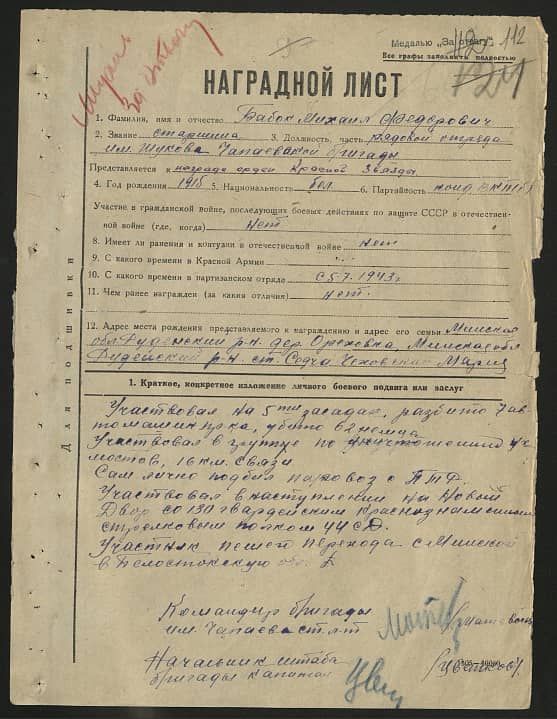 Медалью „За отвагу"
112
Все графы заполнять полностью
За отвагу
НАГРАДНОЙ ЛИСТ
1. Фамилия, имя и отчество Бабок Михаил Федорович
2. Звание старшина 3. Должность, часть рядовой отряда
им. Жукова Чапаевской бригады
Представляется к награде орден Красной Звезды
4. Год рождения 1915 5. Национальность бел. 6. Партийность канд. ВКП(б)
Участие в гражданской войне, последующих боевых действиях по защите СССР в отечествен-
ной войне (где, когда) Нет
8. Имеет ли ранения и контузии в отечественной войне Нет
9. С какого времени в Красной Армии
10. С какого времени в партизанском отряде С 5-7. 1943 г
11. Чем ранее награжден (за какия отличия) Нет.
12. Адрес места рождения представляемого к награждению и адрес его семьи Минская
обл. Руденский р-н. дер. Ореховка, Минская обл
р-н. ст. Седча Чеховская Мария
Для подшивки
1. Краткое, конкретное изложение личного боевого подвига или заслуг
Участвовал на 5ти засадах, разбито 7 ав-
томашин врага, убито 62 немца
Участвовал в группе по уничтожению
мостов, 16 км. связи
Сам лично подбил паровоз с ПТР.
Участвовал в наступлении на Новый
Двор со 130 гвардейским краснознаменным
стрелковым полком 44 СД.
Участник пешего перехода с Минской
в Белостокскую обл.
Командир бригады
им. Чапаева ст. л-т
Начальник штаба
бригады капитан